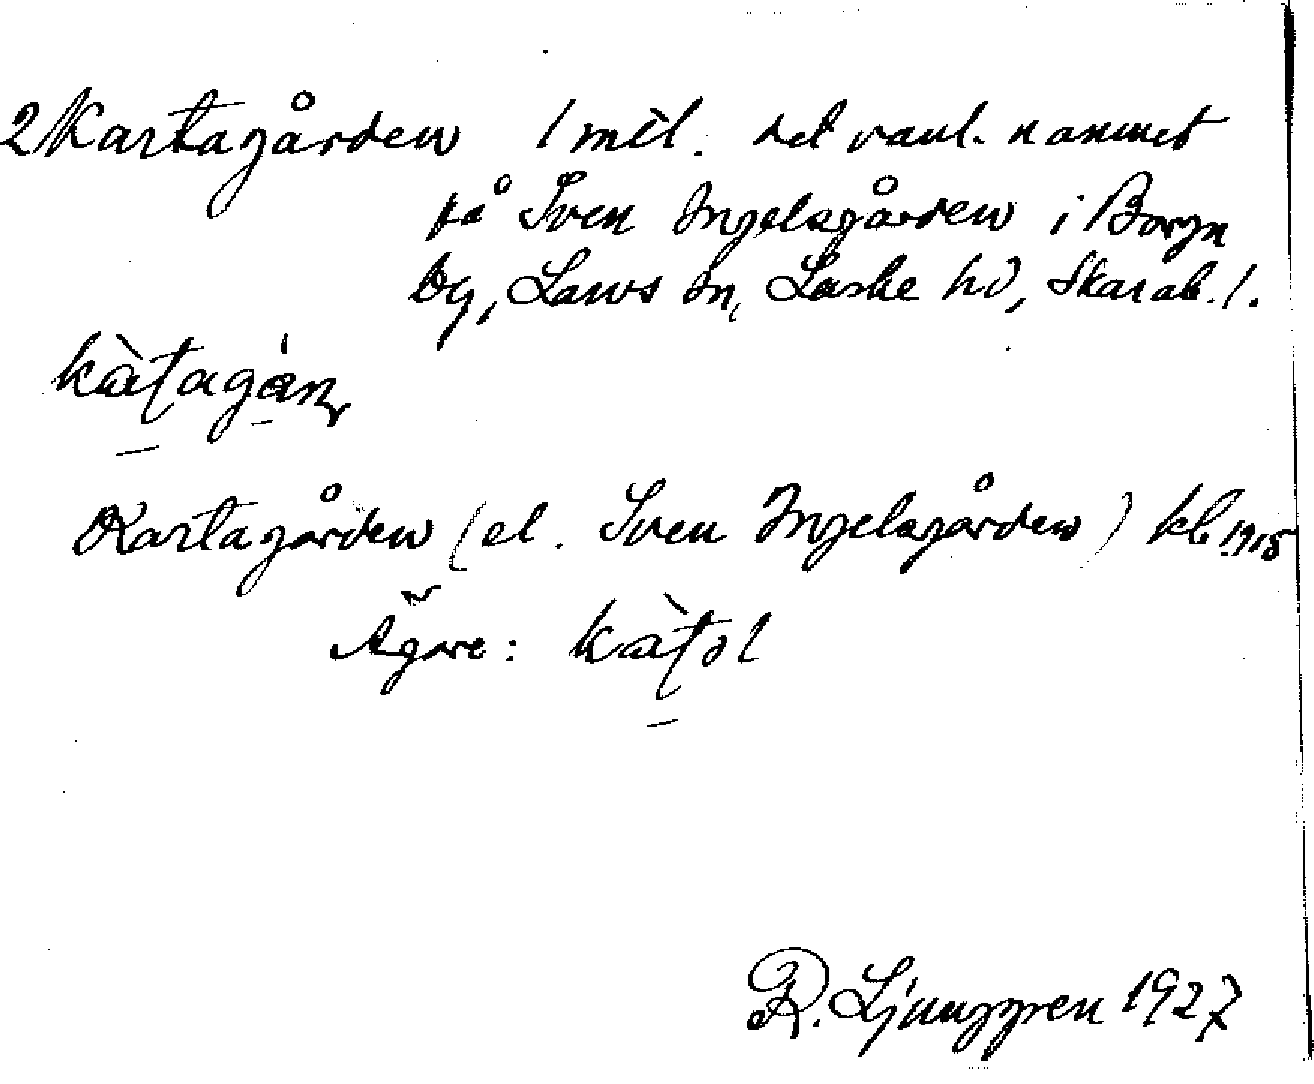 2 Kartagården 1 mtl. det vanl. namnet
på Sven Ingelsgården i Boryn
by, Lavs sn, Laske hd, Skarab. l.
kàtagán
Kartagården (el. Sven Ingelsgården) kb 1915
Ägare: kàtəl
R. Ljunggren 1927